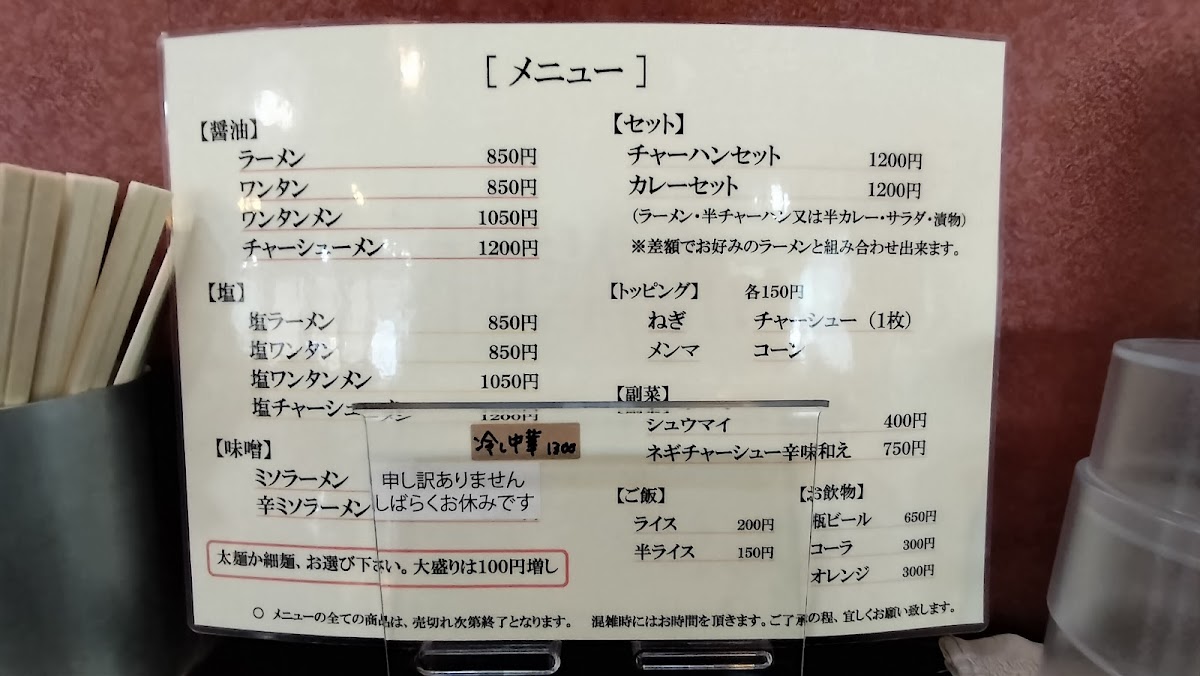 ［ メニュー ］
【醤油】
ラーメン 850円
ワンタン 850円
ワンタンメン 1050円
チャーシューメン 1200円
【塩】
塩ラーメン 850円
塩ワンタン 850円
塩ワンタンメン 1050円
塩チャーシューメン 1200円
冷し中華 1300
【味噌】
ミソラーメン
辛ミソラーメン
申し訳ありません
しばらくお休みです
太麺か細麺、お選び下さい。大盛りは100円増し
【セット】
チャーハンセット 1200円
カレーセット 1200円
（ラーメン・半チャーハン又は半カレー・サラダ・漬物）
※差額でお好みのラーメンと組み合わせ出来ます。
【トッピング】 各150円
ねぎ チャーシュー（1枚）
メンマ コーン
【副菜】
シュウマイ 400円
ネギチャーシュー辛味和え 750円
【ご飯】
ライス 200円
半ライス 150円
【お飲物】
瓶ビール 650円
コーラ 300円
オレンジ 300円
○ メニューの全ての商品は、売切れ次第終了となります。 混雑時にはお時間を頂きます。ご了承の程、宜しくお願い致します。